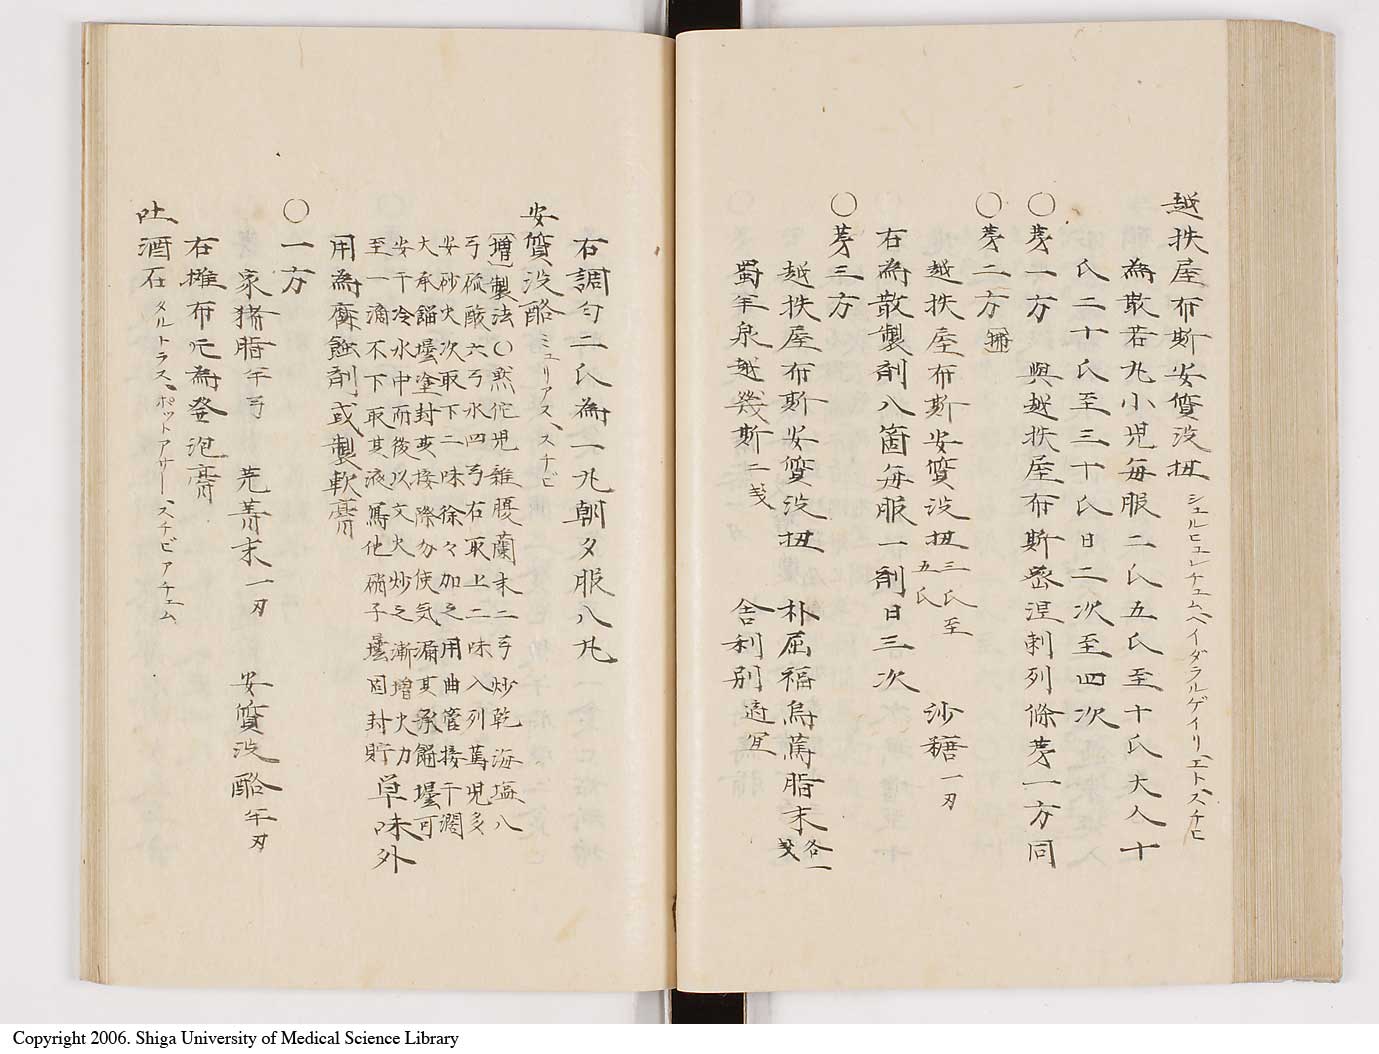 越抶屋布斯安質没扭 シュルヒュレチュムヘイダラルゲイリ、エト、スチヒ
為散若丸小児毎服二氏五氏至十氏大人十
氏二十氏至三十氏日二次至四次
〇第一方 與越抶屋布斯密涅剌列條第一方同
〇第二方 増
越抶屋布斯安質没扭 三氏至五氏 沙糖 一刃
右為散製剤八箇毎服一剤日三次
〇第三方
越抶屋布斯安質没扭 朴屈福烏萬脂末 各一戔
蜀羊泉越幾斯 二戔 舎利別 適宜
右調匀二氏為一丸朝夕服八丸
安質没酪 ミュリアス、スチビ
増 製法〇煞佗児雑腰蘭末二弓炒乾 海塩八
弓硫酸六弓水四弓右取上二味入列篤児多
安砂火次取下二味徐々加之用曲管接干濶
大承餾壜塗封其接際勿使気漏其承餾壜可
安干冷水中而後以文火炒之漸増火力
至一滴不下取其液篤他硝子壜固封貯 単味外
用為腐蝕剤或製軟膏
〇一方
家猪脂 半弓 芫菁末 一刃 安質没酪 半刃
右攤布片為發泡膏
吐酒石 タルトラス、ポットアサー、スチビアチェム
Copyright 2006. Shiga University of Medical Science Library